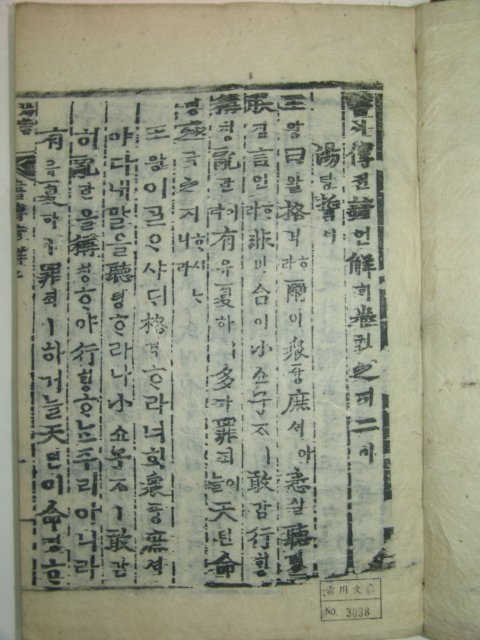 書셔傳젼諺언解ᄒᆡ卷권之지二이
湯탕誓셰
王왕曰왈格격ᄒᆞ라爾이衆즁庶셔아悉실聽텽
朕짐言언ᄒᆞ라非비台이小쇼子ᄌᆞㅣ敢감行ᄒᆡᆼ
稱칭亂란이라有유夏하多다罪죄늘天텬命
명殛극之지ᄒᆞ시ᄂᆞ니라
王왕이ᄀᆞᆯᄋᆞ샤ᄃᆡ格격ᄒᆞ라너희衆즁庶셔
아다내말을聽텽ᄒᆞ라나小쇼子ᄌᆞㅣ敢감
히亂란을稱칭ᄒᆞ야行ᄒᆡᆼᄒᆞᄂᆞᆫ주리아니라
有유夏하ㅣ罪죄ㅣ하거늘天텬이命명ᄒᆞ
川文
No. 3038